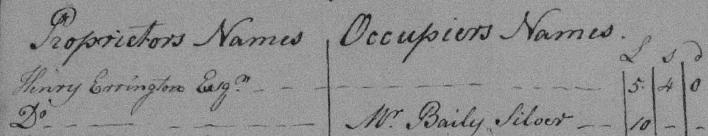 Proprietors Names Occupiers Names.
£ s d
Henry Errington Esqr. 5 4 0
Do Mr. Baily Silver 10 - -